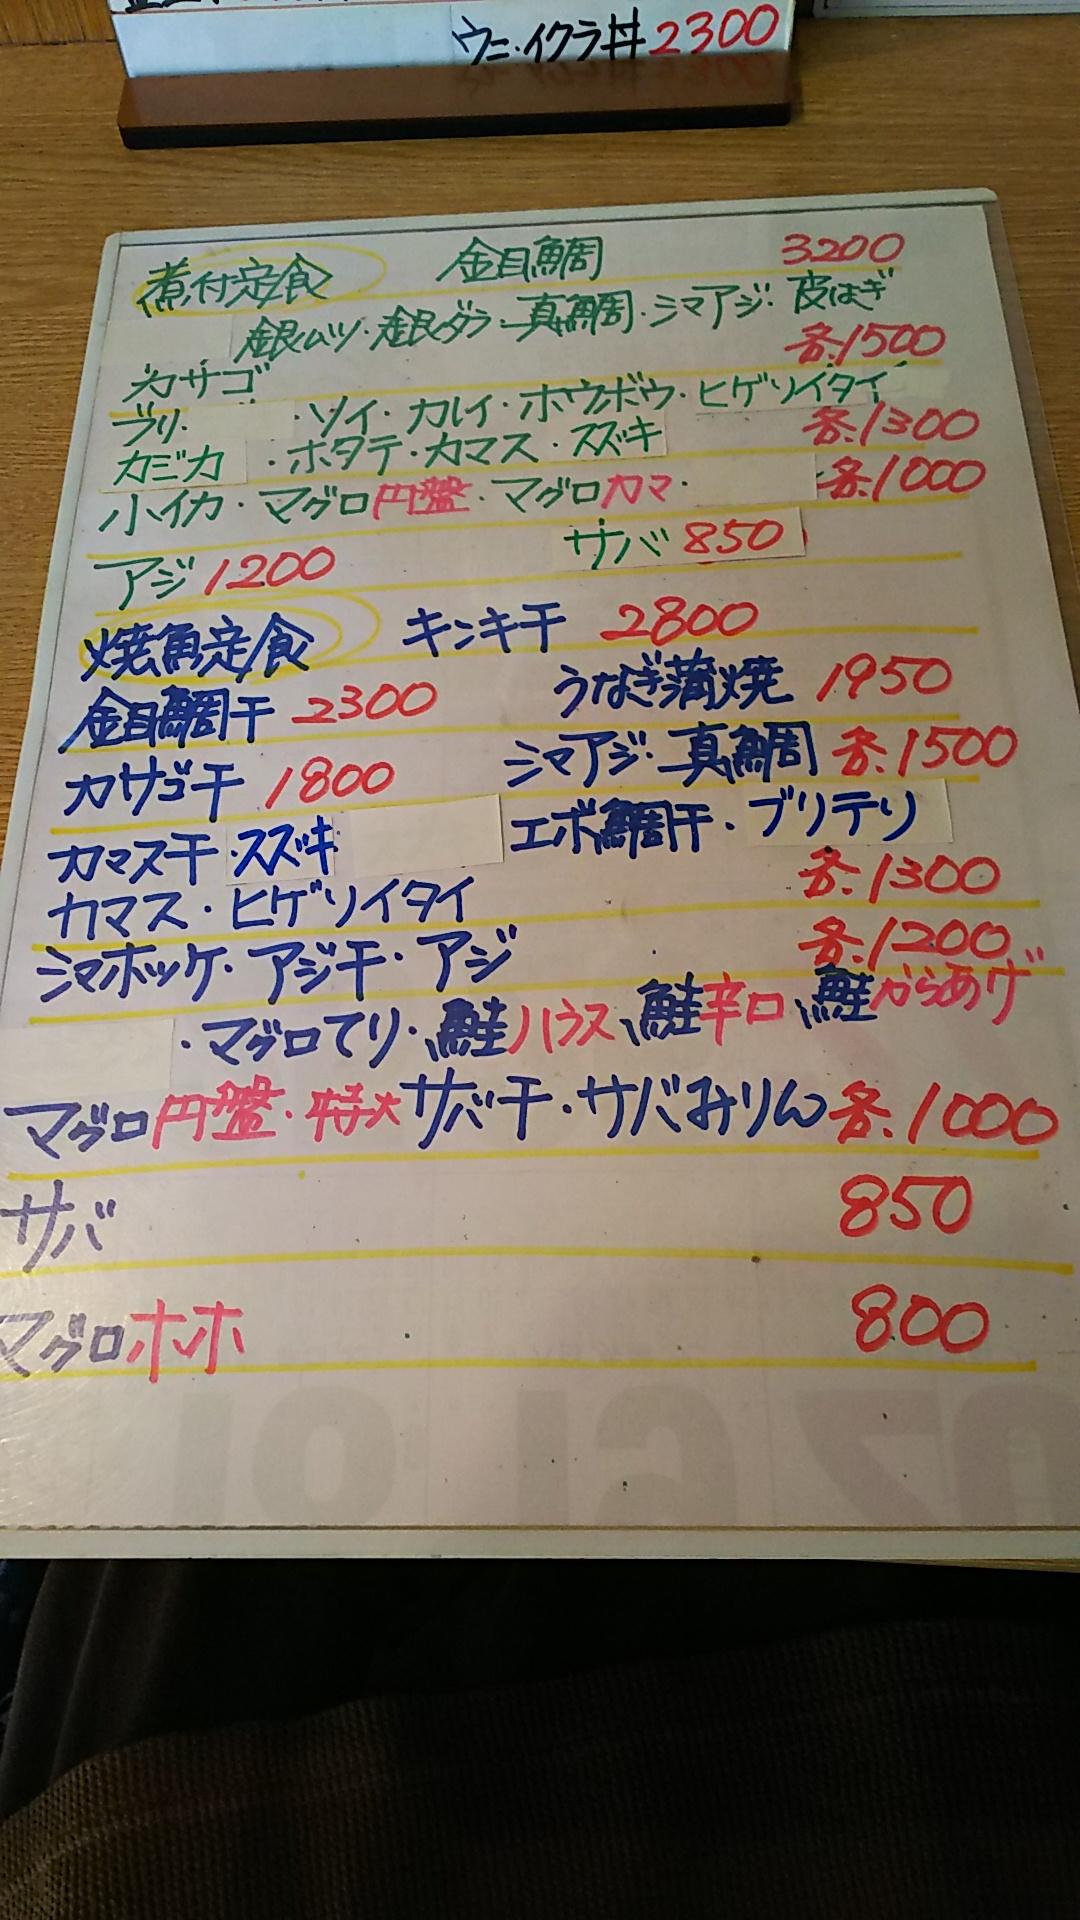 ウニ・イクラ丼 2300
煮付定食 金目鯛 3200
銀ムツ・銀ダラ・真鯛・シマアジ・皮はぎ
カサゴ 各.1500
ブリ・ ・ソイ・カレイ・ホウボウ・ヒゲソイタイ
カジカ ・ホタテ・カマス・スズキ 各.1300
小イカ・マグロ円盤・マグロカマ・ 各.1000
アジ 1200 サバ 850
焼魚定食 キンキ干 2800
金目鯛干 2300 うなぎ蒲焼 1950
カサゴ干 1800 シマアジ・真鯛 各.1500
カマス干・スズキ エボ鯛干・ブリテリ
カマス・ヒゲソイタイ 各.1300
シマホッケ・アジ干・アジ 各.1200
・マグロてり・鮭ハラス、鮭辛口、鮭からあげ
マグロ円盤・特大サバ干・サバみりん 各.1000
サバ 850
マグロホホ 800